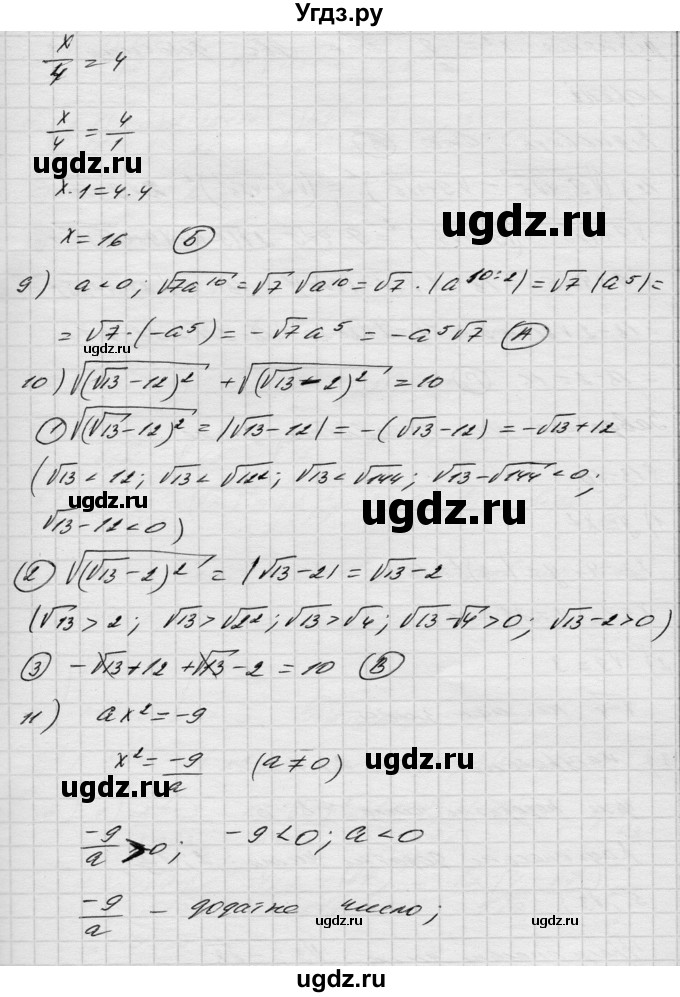 Угдз.ру
x/4 = 4
x/4 = 4/1
ugdz.ru
x·1=4·4
ugdz.ru
x=16 Б
9) a<0; √7a¹⁰ = √7 √a¹⁰ = √7 · |a¹⁰:²| = √7 |a⁵| =
= √7·(-a⁵) = -√7a⁵ = -a⁵√7 А
10) √(√13-12)² + √(√13-2)² = 10
1 √(√13-12)² = |√13-12| = -(√13-12) = -√13+12
(√13<12; √13<√12²; √13<√144; √13-√144<0;
ugdz.ru
ugdz.ru
√13-12<0)
2 √(√13-2)² = |√13-2| = √13-2
(√13>2; √13>√2²; √13>√4; √13-√4>0; √13-2>0)
3 -√13+12+√13-2=10 В
11) ax²=-9
x² = -9/a (a≠0)
ugdz.ru
ugdz.ru
-9/a > 0; -9<0; a<0
-9/a – додатнє число;
ugdz.ru
ugdz.ru
ugdz.ru
ugdz.ru